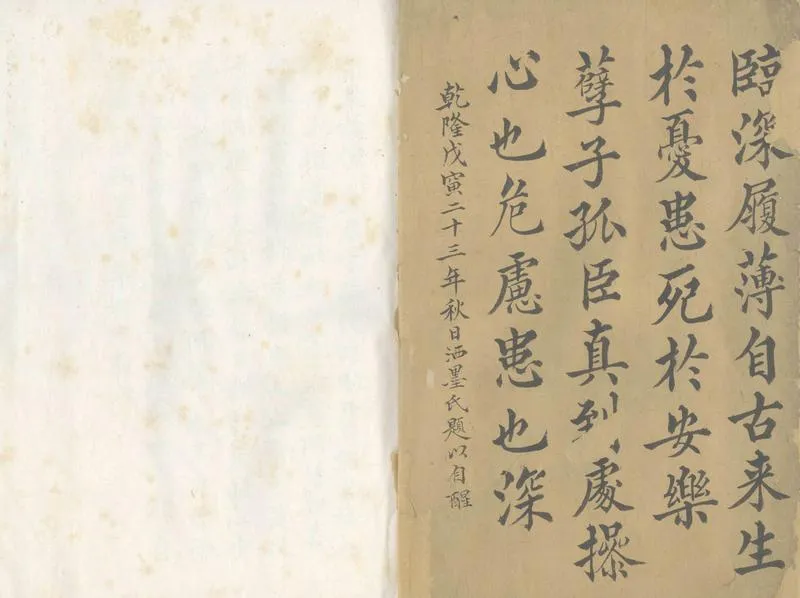 臨深履薄自古来生
於憂患死於安樂
孽子孤臣真到處操
心也危慮患也深
乾隆戊寅二十三年秋日洒墨氏題以自醒